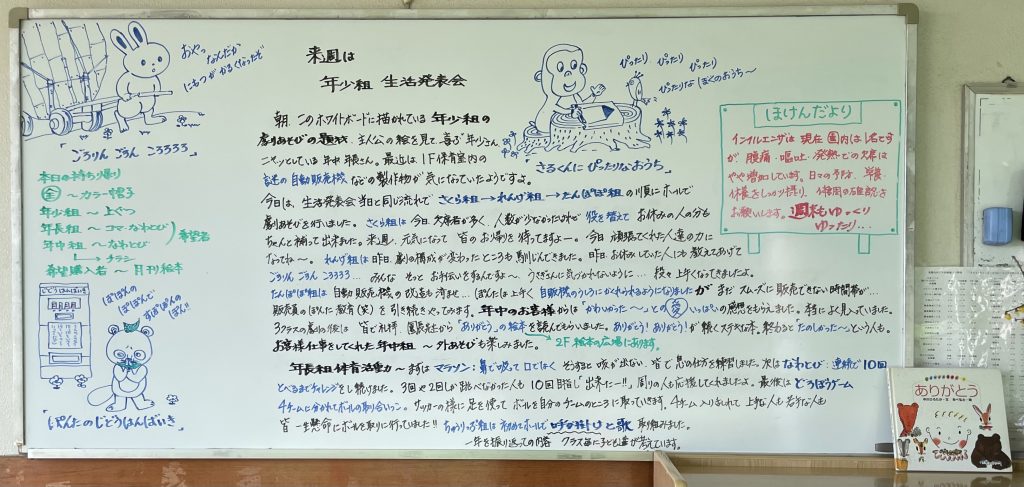 おやっ なんだか
にもつが かるくなったぞ
「ごろりん ごろん ころろろろ」
本日の持ち帰り
全 ～ カラー帽子
年少組 ～ 上ぐつ
年長組 ～ コマ・なわとび
年中組 ～ なわとび
希望者
チラシ
希望購入者 ～ 月刊絵本
じどうはんばいき
ぽぽんの
ぽんで
すぽぽんの
ぽん!!
「ぽんたのじどうはんばいき」
来週は
年少組 生活発表会
ぴったり ぴったり ぴったり
ぴったりな ぼくのおうち～
「さるくんに ぴったりなおうち」
朝、このホワイトボードに描かれている 年少組の
劇あそびの題材 主人公の絵を見て 喜ぶ 年少さん
ニヤッとしている 年中 年長さん。最近は 1F保育室内の
の自動販売機 などの製作物が 気になっていたようですよ。
今日は、生活発表会 当日と同じ流れで さくら組→れんげ組→たんぽぽ組 の順に ホールで
劇あそびを行いました。さくら組は 今日 欠席者が多く、人数が少なかった為 役を替えて お休みの人の分も
ちゃんと補って出来ました。来週、元気になって 皆のお帰りを待ってますよー。今日 頑張ってくれた人達の力に
なってね～。れんげ組は昨日、劇の構成が変わったところも 馴れてきました。昨日お休みしていた人にも 教えてあげて
ごろりん ごろん ころろろろ… みんな そっと お手伝いをするんですよ～、うさぎさんに気づかれないように… 段々 上手くなってきましたよ。
たんぽぽ組は 自動販売機の改造も済ませ… ぽんたは上手く 自販機のうしろにかくれられるようになりましたが まだ スムーズに販売できない時間帯が…
販売員のぽんた教育(笑)を引き続きやってます。年中のお客様からは「かわいかった～」と 愛 いっぱいの感想をもらえました。本当によく見ていました。
3クラスの劇の後には 皆でお礼。園長先生から「ありがとう」の絵本を読んでもらいました。ありがとう！ありがとう！が続くステキな本。終わると「たのしかった～」という人も。
お客様仕事をしてくれた 年中組 ～ 外あそびも楽しみました。
2F 絵本の広場にあります。
年長組 体育活動 ～ まずは マラソン：鼻で吸って 口ではく そうすると 咳が出ない 皆で息の仕方を練習しました。次は なわとび：連続で10回
とべるまでチャレンジをし続けました。3回や2回しか跳べなかった人も 10回目指し「出来たー!!」周りの人も応援してくれましたよ。最後は どろぼうゲーム
4チームに分かれてボールの取り合いっこ。サッカーの様に足を使って ボールを自分のチームのところに取っていきます。4チーム入りみだれて 上手な人も 苦手な人も
皆 一生懸命に ボールを取りに行っていました!! ちゅうりっぷ組は 初めてホールで 呼び掛けと歌 取り組みました。
一年を振り返っての内容 クラス毎に子ども達が考えています。
ほけんだより
インフルエンザは 現在 園内は1名とです
が 腹痛・嘔吐・発熱での欠席は
やや増加しています。日々の予防、栄養、
休養をしっかり摂り、体調の確認を
お願いします。週末も ゆっくり
ゆったり…
ありがとう